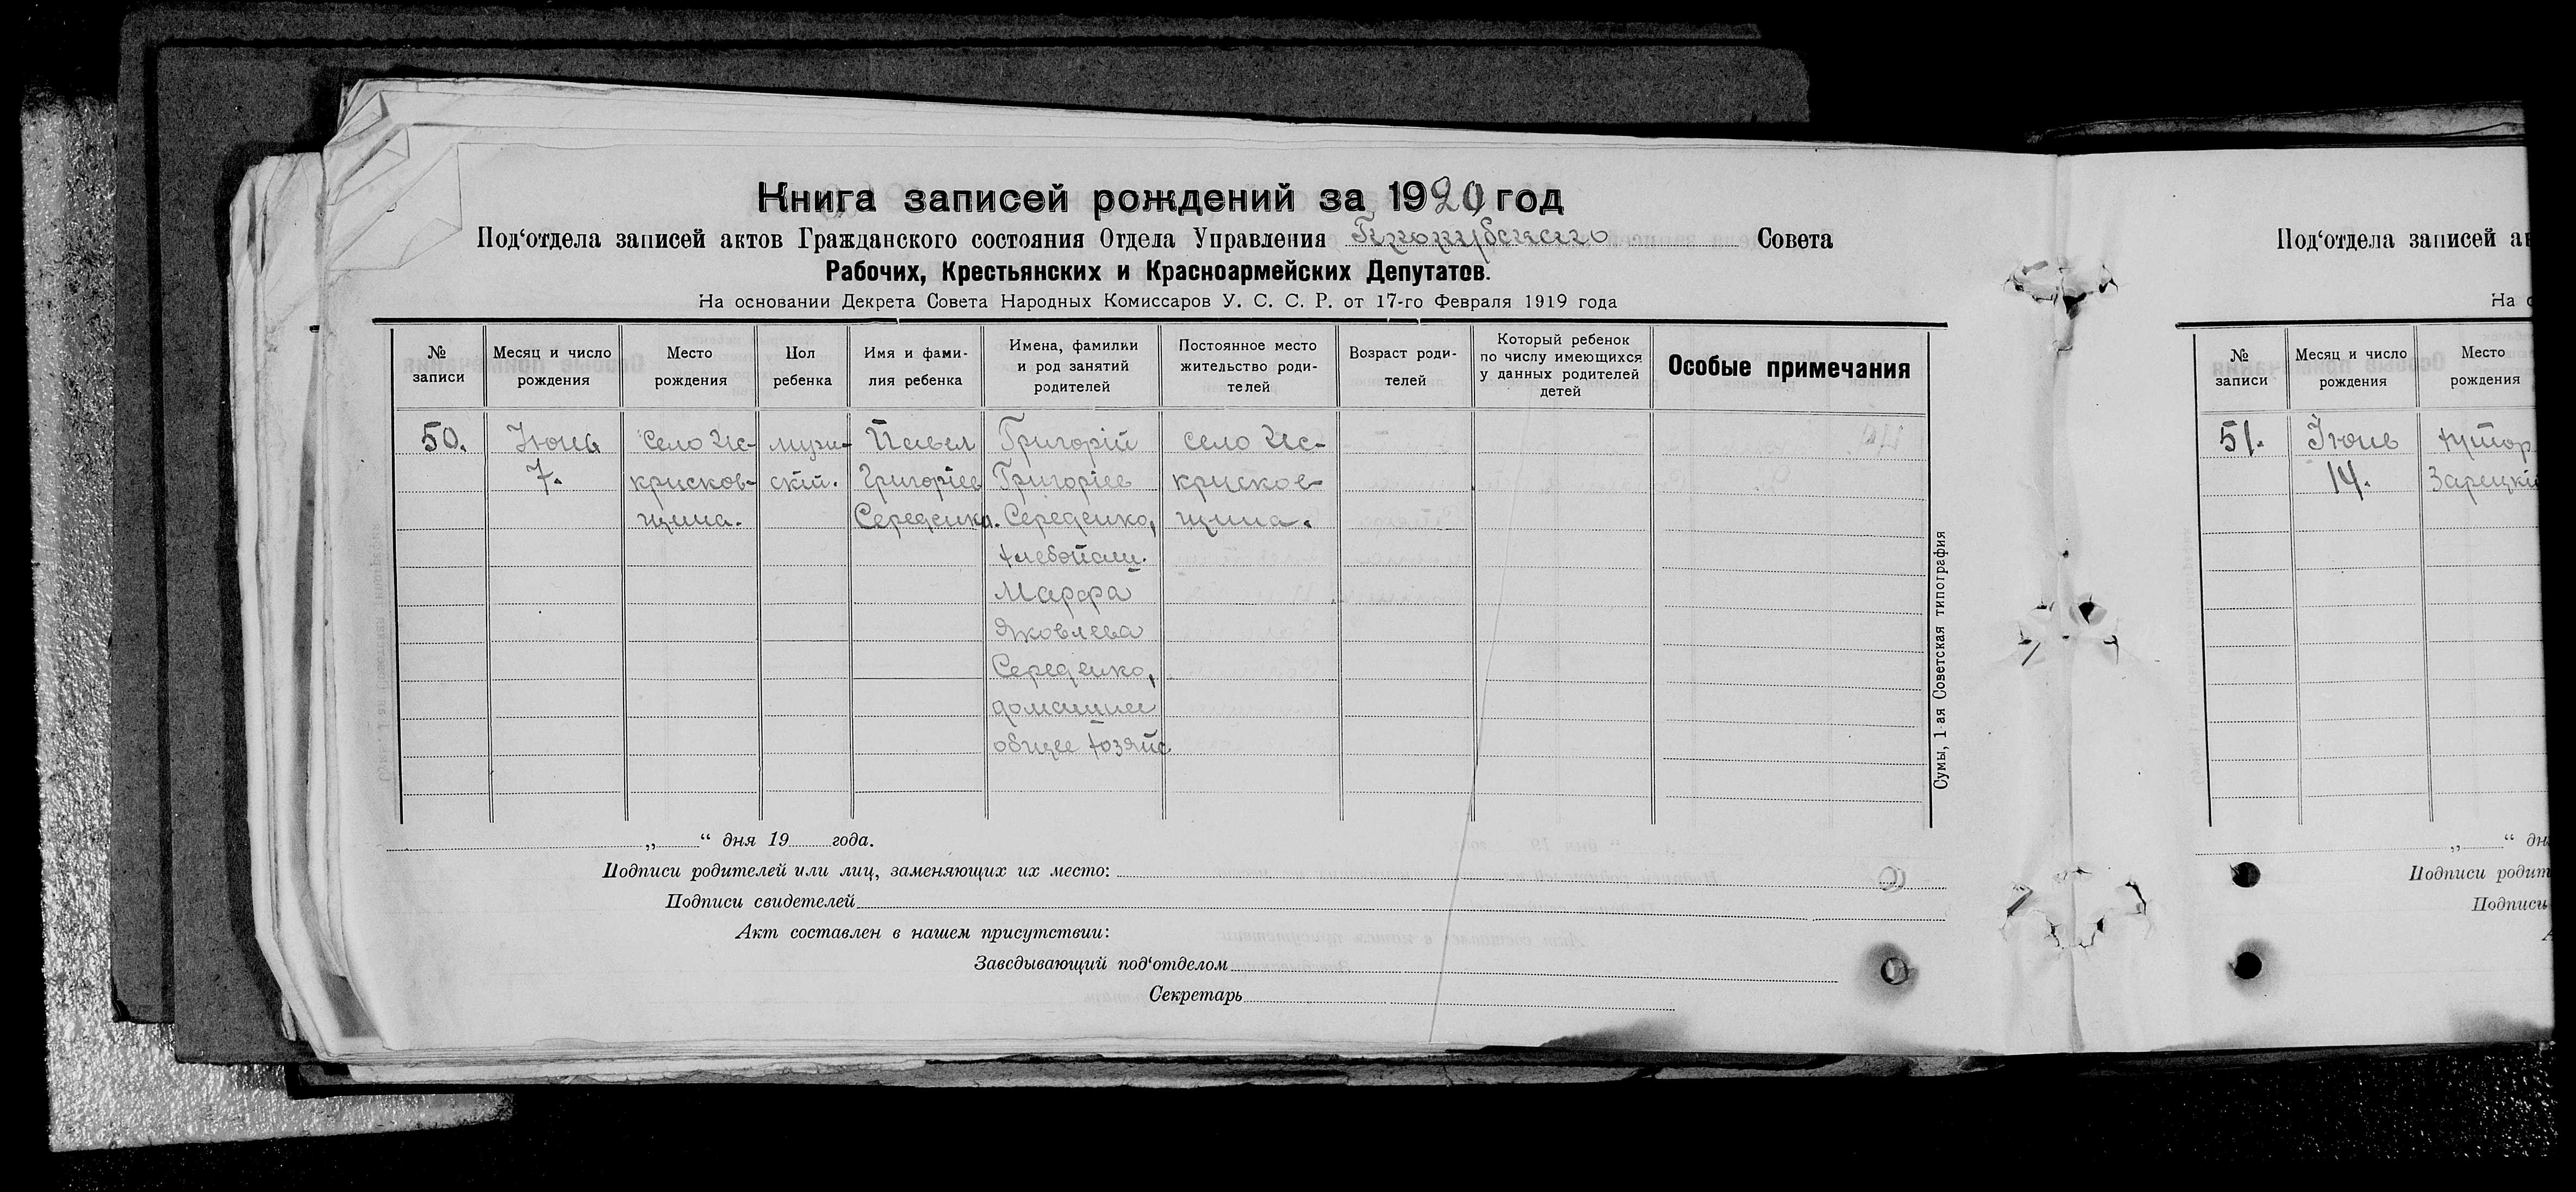 Книга записей рождений за 1920 год
Под‘отдела записей актов Гражданского состояния Отдела Управления Совета
Рабочих, Крестьянских и Красноармейских Депутатов.
На основании Декрета Совета Народных Комиссаров У. С. С. Р. от 17-го Февраля 1919 года
№ записи
Месяц и число рождения
Место рождения
Пол ребенка
Имя и фами-
лия ребенка
Имена, фамилии
и род занятий
родителей
Постоянное место
жительство роди-
телей
Возраст роди-
телей
Который ребенок
по числу имеющихся
у данных родителей
детей
Особые примечания
50.
Июнь
7.
Село Ис-
крисков-
щина.
муж-
скій.
Павел
Григоріев
Середенко.
Григорій
Григоріев
Середенко,
хлебопаш.
Марфа
Яковлева
Середенко,
домашнее
общее хозяйс.
село Ис-
крисков-
щина.
Сумы, 1-ая Советская типография
„ “ дня 19 года.
Подписи родителей или лиц, заменяющих их место:
Подписи свидетелей
Акт составлен в нашем присутствии:
Заведывающий под‘отделом
Секретарь
Под‘отдела записей ак
На о
№ записи
Месяц и число рождения
Место рождения
51.
Июнь
14.
хутор
Зарецкій
„ “ дн
Подписи родит
Подписи